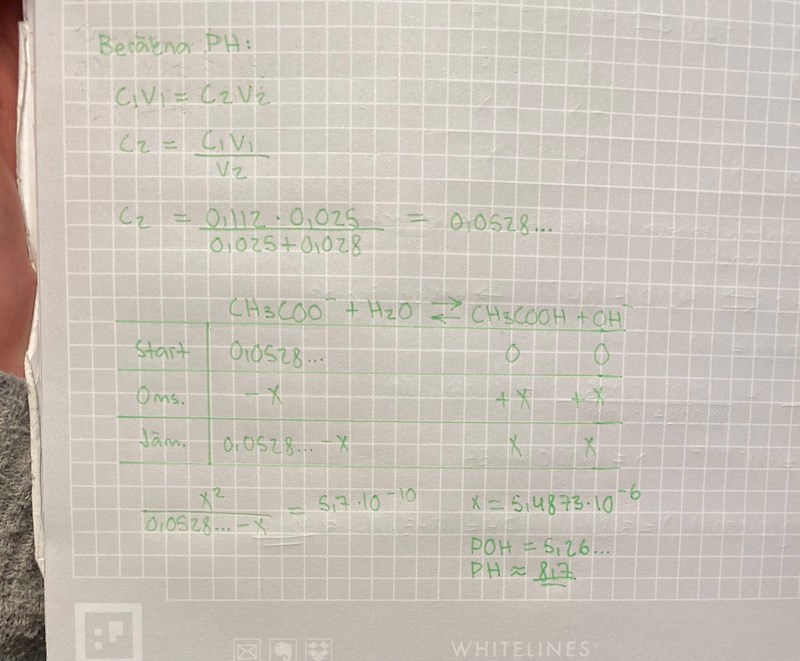 Beräkna PH:
C1V1 = C2V2
C2 = C1V1 / V2
C2 = 0,112 · 0,025 / 0,025+0,028 = 0,0528...
CH3COO⁻ + H2O ⇌ CH3COOH + OH⁻
Start 0,0528... 0 0
Oms. -X +X +X
Jäm. 0,0528... -X X X
X² / 0,0528... -X = 5,7·10⁻¹⁰ X = 5,4873·10⁻⁶
POH = 5,26...
PH ≈ 8,7
WHITELINES